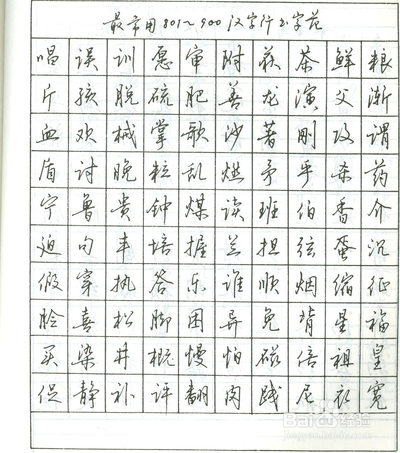 最常用801～900汉字行书字范
唱误训愿审附获茶鲜粮
斤孩脱硫肥善龙演父渐
血欢械掌歌沙著刚攻谓
盾讨晚粒乱燃矛乎杀药
宁鲁贵钟煤读班伯香介
迫句丰培握兰担弦蛋沉
假穿执答乐谁顺烟缩征
脸喜松脚困异免背星福
买染井概慢怕磁倍祖皇
促静补评翻肉践尼衣宽
Baidu经验
jingyan.baidu.com